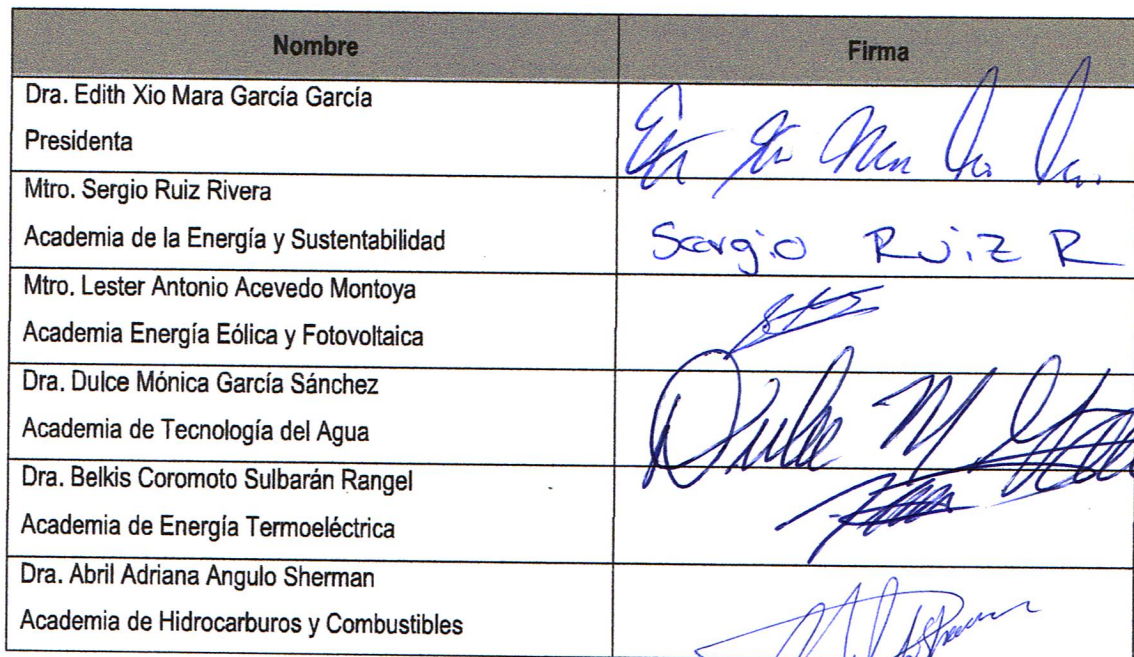 Nombre Firma
Dra. Edith Xio Mara García García
Presidenta
Mtro. Sergio Ruiz Rivera
Academia de la Energía y Sustentabilidad Sergio Ruiz R
Mtro. Lester Antonio Acevedo Montoya
Academia Energía Eólica y Fotovoltaica
Dra. Dulce Mónica García Sánchez
Dulce M
Academia de Tecnología del Agua
Dra. Belkis Coromoto Sulbarán Rangel
Academia de Energía Termoeléctrica
Dra. Abril Adriana Angulo Sherman
Academia de Hidrocarburos y Combustibles